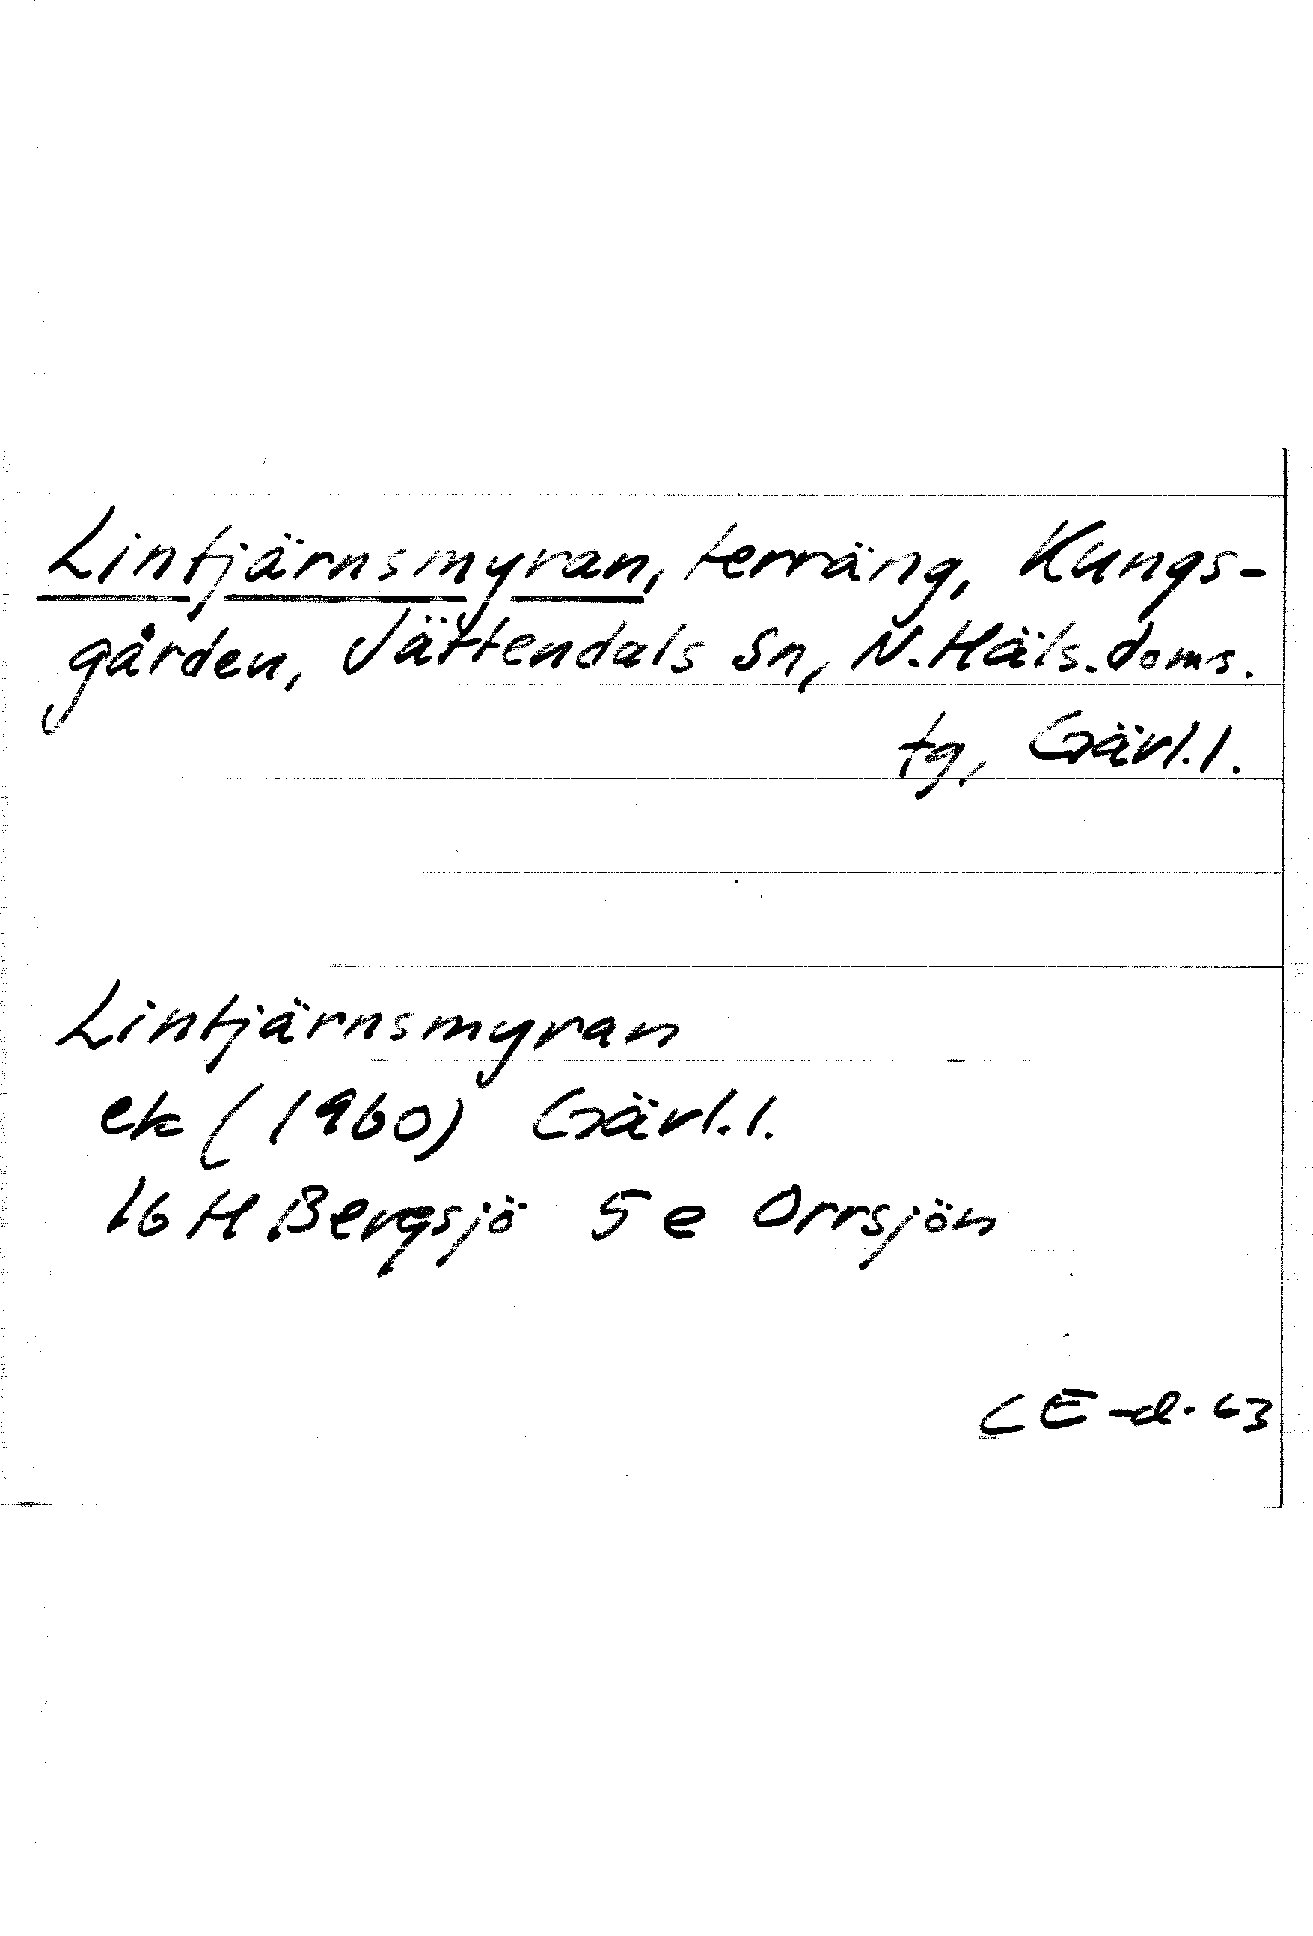 Lintjärnsmyran, terräng, Kungs-
gården, Jättendals Sn, N. Häls. doms.
tg, Gävl. l.
Lintjärnsmyran
ek (1960) Gävl. l.
16 H Bergsjö 5 e Orrsjön
CE-d. 63